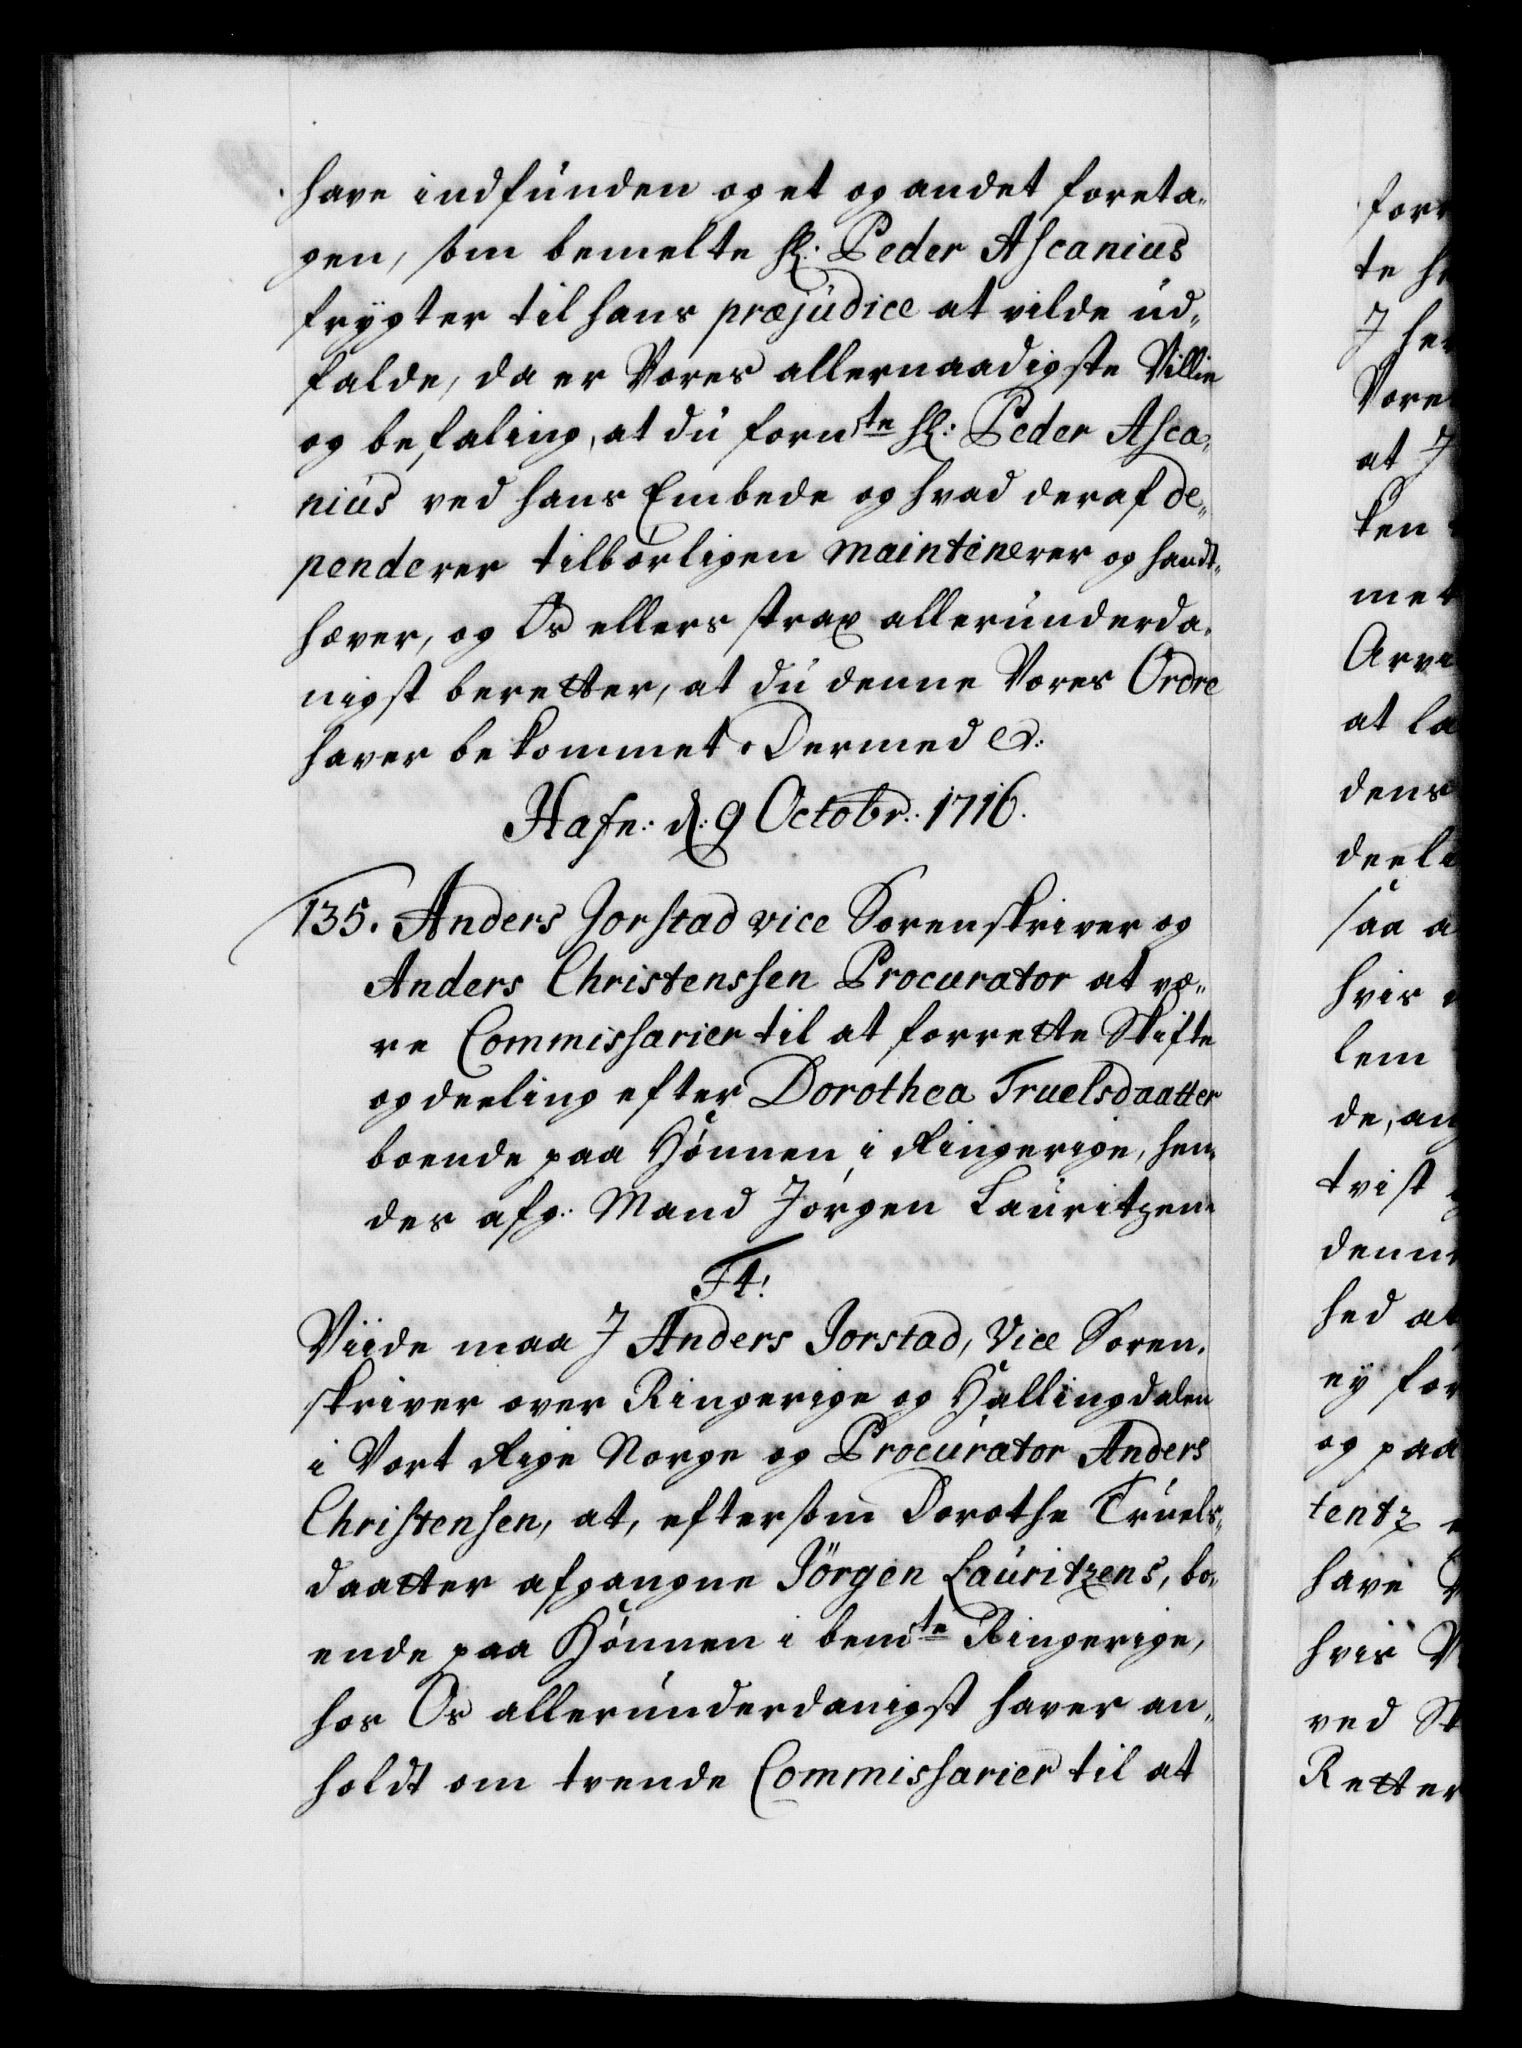 have indfunden og et og andet foreta-
gen, som bemelte Hr. Peder Ascanius
frygter til hans præjudice at vilde ud-
falde, da er Vores allernaadigste Villie
og befaling, at du fornte Hr: Peder Asca-
nius ved hans Embede og hvad deraf de-
penderer tilbørligen maintinerer og handt-
hæver, og Os ellers strax allerunderda-
nigst beretter, at du denne Vores Ordre
haver bekommet. Dermed &:
Hafn: d: 9 Octobr: 1716.
135. Anders Jorstad vice Sorenskriver og
Anders Christenssen Procurator at væ-
re Commissarier til at forrette Skifte
og deeling efter Dorothea Truelsdaatter
boende paa Hønnen i Ringerige, hen-
des afg: Mand Jørgen Lauritzen
F4!
Viide maa J Anders Jorstad, Vice Soren-
skriver over Ringerige og Hallingdalen
i Vort Rige Norge og Procurator Anders
Christensen, at, eftersom Dorothe Truels-
daatter afgangne Jörgen Lauritzens, bo-
ende paa Hønnen i bemte Ringerige,
hos Os allerunderdanigst haver an-
holdt om tvende Commissarier til at